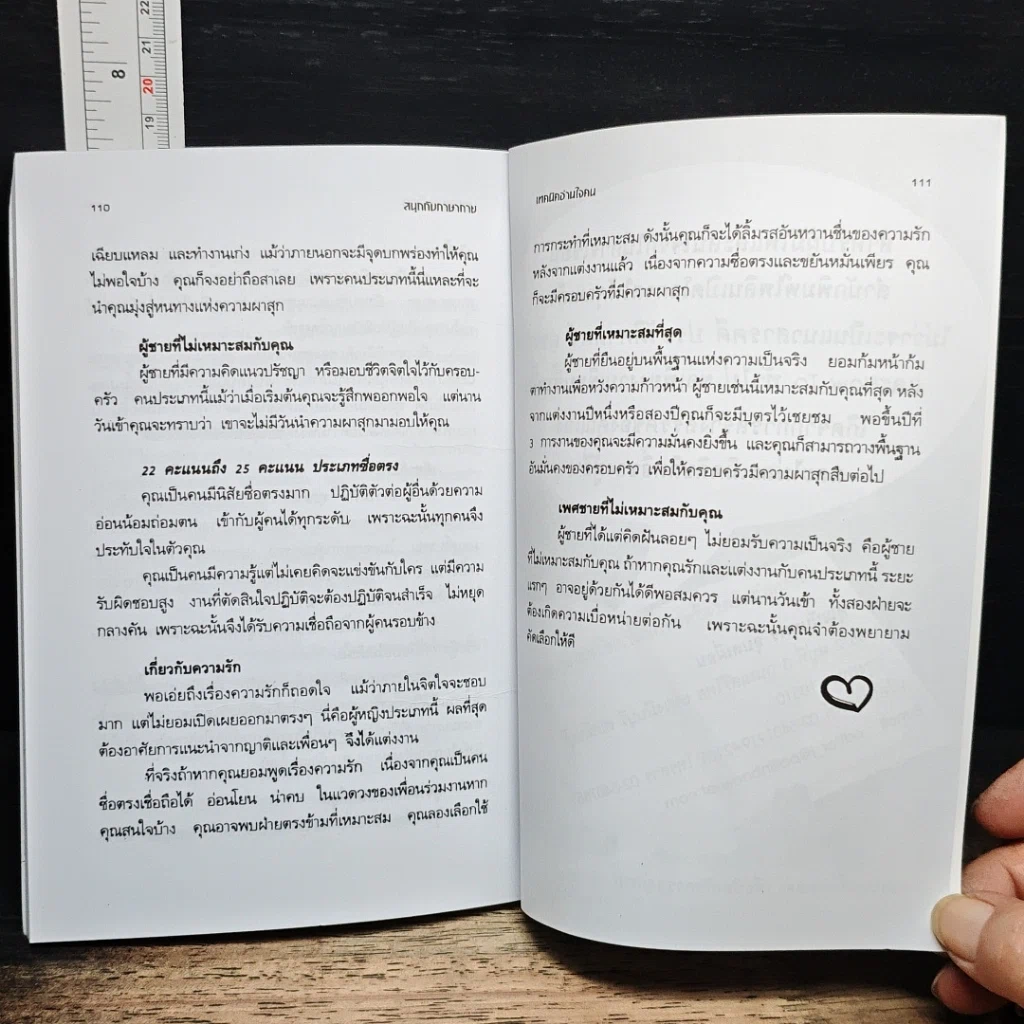 22
21
8
20
19
110
สนุกกับภาษากาย
เฉียบแหลม และทำงานเก่ง แม้ว่าภายนอกจะมีจุดบกพร่องทำให้คุณ
ไม่พอใจบ้าง คุณก็จงอย่าถือสาเลย เพราะคนประเภทนี้นี่แหละที่จะ
นำคุณมุ่งสู่หนทางแห่งความผาสุก
ผู้ชายที่ไม่เหมาะสมกับคุณ
ผู้ชายที่มีความคิดแนวปรัชญา หรือมอบชีวิตจิตใจไว้กับครอบ-
ครัว คนประเภทนี้แม้ว่าเมื่อเริ่มต้นคุณจะรู้สึกพออกพอใจ แต่นาน
วันเข้าคุณจะทราบว่า เขาจะไม่มีวันนำความผาสุกมามอบให้คุณ
22 คะแนนถึง 25 คะแนน ประเภทซื่อตรง
คุณเป็นคนมีนิสัยซื่อตรงมาก ปฏิบัติตัวต่อผู้อื่นด้วยความ
อ่อนน้อมถ่อมตน เข้ากับผู้คนได้ทุกระดับ เพราะฉะนั้นทุกคนจึง
ประทับใจในตัวคุณ
คุณเป็นคนมีความรู้แต่ไม่เคยคิดจะแข่งขันกับใคร แต่มีความ
รับผิดชอบสูง งานที่ตัดสินใจปฏิบัติจะต้องปฏิบัติจนสำเร็จ ไม่หยุด
กลางคัน เพราะฉะนั้นจึงได้รับความเชื่อถือจากผู้คนรอบข้าง
เกี่ยวกับความรัก
พอเอ่ยถึงเรื่องความรักก็ถอดใจ แม้ว่าภายในจิตใจจะชอบ
มาก แต่ไม่ยอมเปิดเผยออกมาตรงๆ นี่คือผู้หญิงประเภทนี้ ผลที่สุด
ต้องอาศัยการแนะนำจากญาติและเพื่อนๆ จึงได้แต่งงาน
ที่จริงถ้าหากคุณยอมพูดเรื่องความรัก เนื่องจากคุณเป็นคน
ซื่อตรงเชื่อถือได้ อ่อนโยน น่าคบ ในแวดวงของเพื่อนร่วมงานหาก
คุณสนใจบ้าง คุณอาจพบฝ่ายตรงข้ามที่เหมาะสม คุณลองเลือกใช้
เทคนิคอ่านใจคน
111
การกระทำที่เหมาะสม ดังนั้นคุณก็จะได้ลิ้มรสอันหวานชื่นของความรัก
หลังจากแต่งงานแล้ว เนื่องจากความซื่อตรงและขยันหมั่นเพียร คุณ
ก็จะมีครอบครัวที่มีความผาสุก
ผู้ชายที่เหมาะสมที่สุด
ผู้ชายที่ยืนอยู่บนพื้นฐานแห่งความเป็นจริง ยอมก้มหน้าก้ม
ตาทำงานเพื่อหวังความก้าวหน้า ผู้ชายเช่นนี้เหมาะสมกับคุณที่สุด หลัง
จากแต่งงานปีหนึ่งหรือสองปีคุณก็จะมีบุตรไว้เชยชม พอขึ้นปีที่
3 การงานของคุณจะมีความมั่นคงยิ่งขึ้น และคุณก็สามารถวางพื้นฐาน
อันมั่นคงของครอบครัว เพื่อให้ครอบครัวมีความผาสุกสืบต่อไป
เพศชายที่ไม่เหมาะสมกับคุณ
ผู้ชายที่ได้แต่คิดฝันลอยๆ ไม่ยอมรับความเป็นจริง คือผู้ชาย
ที่ไม่เหมาะสมกับคุณ ถ้าหากคุณรักและแต่งงานกับคนประเภทนี้ ระยะ
แรกๆ อาจอยู่ด้วยกันได้ดีพอสมควร แต่นานวันเข้า ทั้งสองฝ่ายจะ
ต้องเกิดความเบื่อหน่ายต่อกัน เพราะฉะนั้นคุณจำต้องพยายาม
คัดเลือกให้ดี